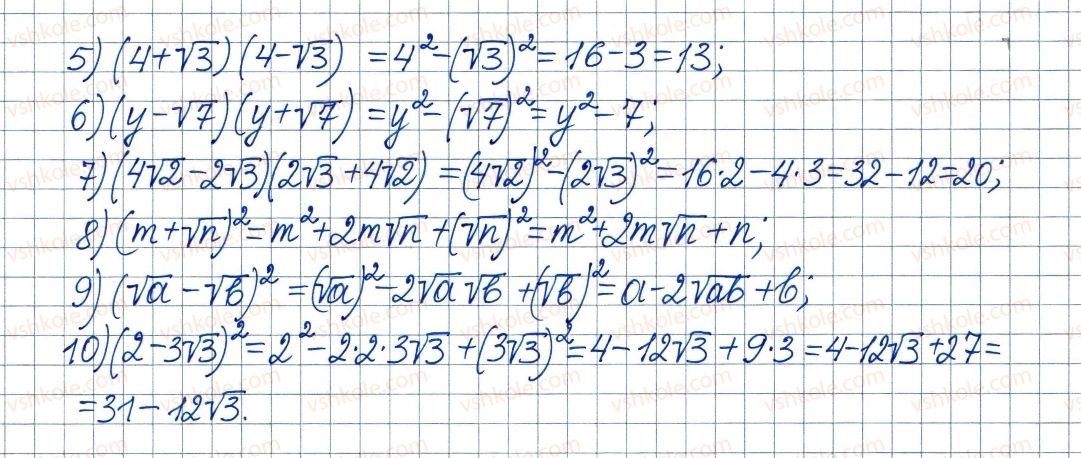 5) (4+√3)(4-√3) = 4² - (√3)² = 16 - 3 = 13;
6) (y - √7)(y + √7) = y² - (√7)² = y² - 7;
7) (4√2 - 2√3)(2√3 + 4√2) = (4√2)² - (2√3)² = 16·2 - 4·3 = 32 - 12 = 20;
8) (m + √n)² = m² + 2m√n + (√n)² = m² + 2m√n + n;
9) (√a - √b)² = (√a)² - 2√a√b + (√b)² = a - 2√ab + b;
10) (2 - 3√3)² = 2² - 2·2·3√3 + (3√3)² = 4 - 12√3 + 9·3 = 4 - 12√3 + 27 =
= 31 - 12√3.
vshkole.com